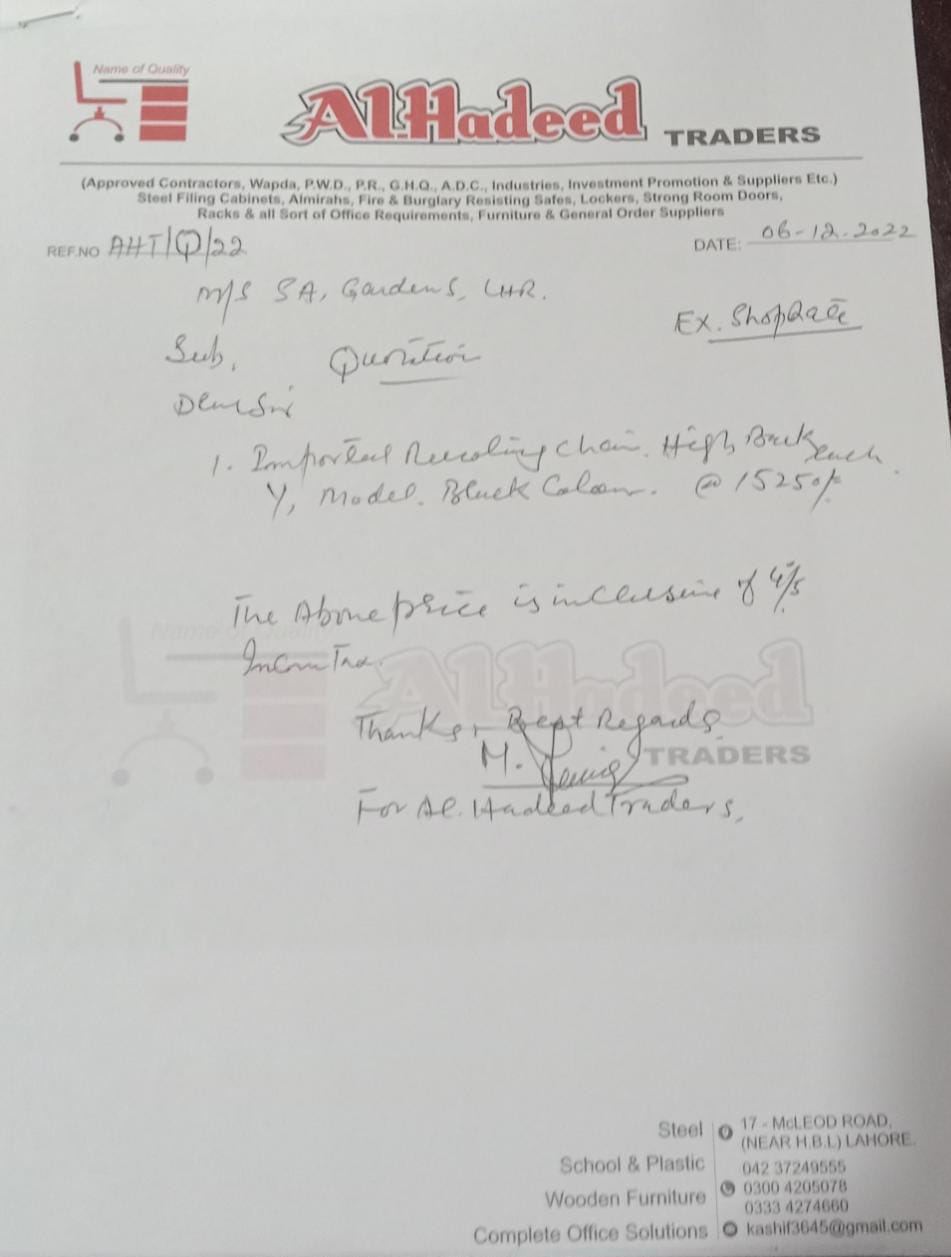 Name of Quality
Al.Hadeed TRADERS
(Approved Contractors, Wapda, P.W.D., P.R., G.H.Q., A.D.C., Industries, Investment Promotion & Suppliers Etc.)
Steel Filing Cabinets, Almirahs, Fire & Burglary Resisting Safes, Lockers, Strong Room Doors,
Racks & all Sort of Office Requirements, Furniture & General Order Suppliers
REF.NO AHT/Q/22
DATE: 06-12-2022
M/S SA, Gardens, LHR.
Ex. Shop Rate
Sub, Quotation
Dear Sir
1. Imported Revolving Chair. High Back
Y, Model. Black Colour. @ 15250/- each
The Above price is inclusive of
Income Tax.
Thanks, Best Regards
M.
For Al. Hadeed Traders,
Name of Quality
Al.Hadeed
TRADERS
Steel
School & Plastic
Wooden Furniture
Complete Office Solutions
17 - McLEOD ROAD,
(NEAR H.B.L) LAHORE.
042 37249555
0300 4205078
0333 4274660
kashif3645@gmail.com